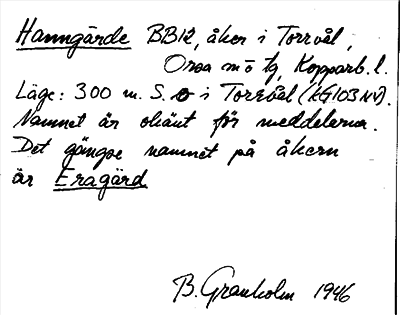 Hanngärde BB12, åker i Torrvål,
Orsa sn o tg, Kopparb. l.
Läge: 300 m. S. o i Torrvål (KG103NV).
Namnet är okänt för meddelerna.
Det gängse namnet på åkern
är Eragärd
B. Granholm 1946